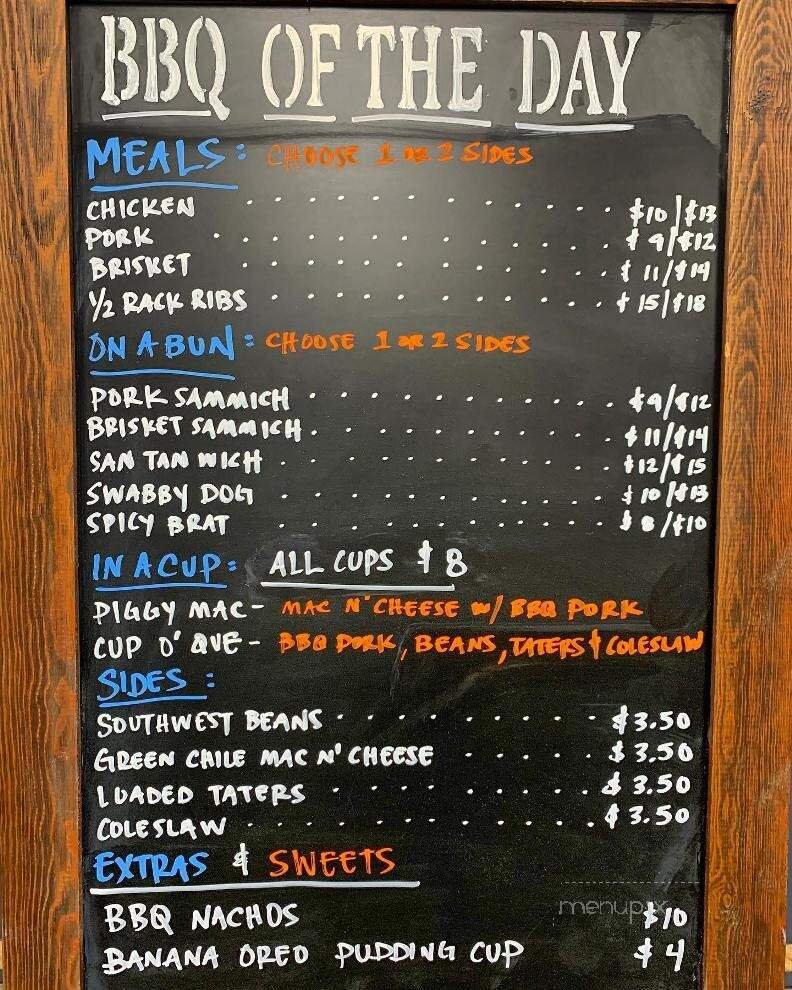 BBQ OF THE DAY
MEALS: CHOOSE 1 OR 2 SIDES
CHICKEN . . . . . . . . . . . . . $10/$13
PORK . . . . . . . . . . . . . $9/$12
BRISKET . . . . . . . . . . . . $11/$14
1/2 RACK RIBS . . . . . . . . . . . $15/$18
ON A BUN: CHOOSE 1 OR 2 SIDES
PORK SAMMICH . . . . . . . . . . . $9/$12
BRISKET SAMMICH . . . . . . . . . . . $11/$14
SAN TAN WICH . . . . . . . . . . . $12/$15
SWABBY DOG . . . . . . . . . . . $10/$13
SPICY BRAT . . . . . . . . . . . $8/$10
IN A CUP: ALL CUPS $8
PIGGY MAC - MAC N' CHEESE W/ BBQ PORK
CUP O' QUE - BBQ PORK, BEANS, TATERS & COLESLAW
SIDES:
SOUTHWEST BEANS . . . . . . . . . $3.50
GREEN CHILE MAC N' CHEESE . . . . . $3.50
LOADED TATERS . . . . . . . . . $3.50
COLESLAW . . . . . . . . . . . . $3.50
EXTRAS & SWEETS
BBQ NACHOS $10
BANANA OREO PUDDING CUP $4
menupix